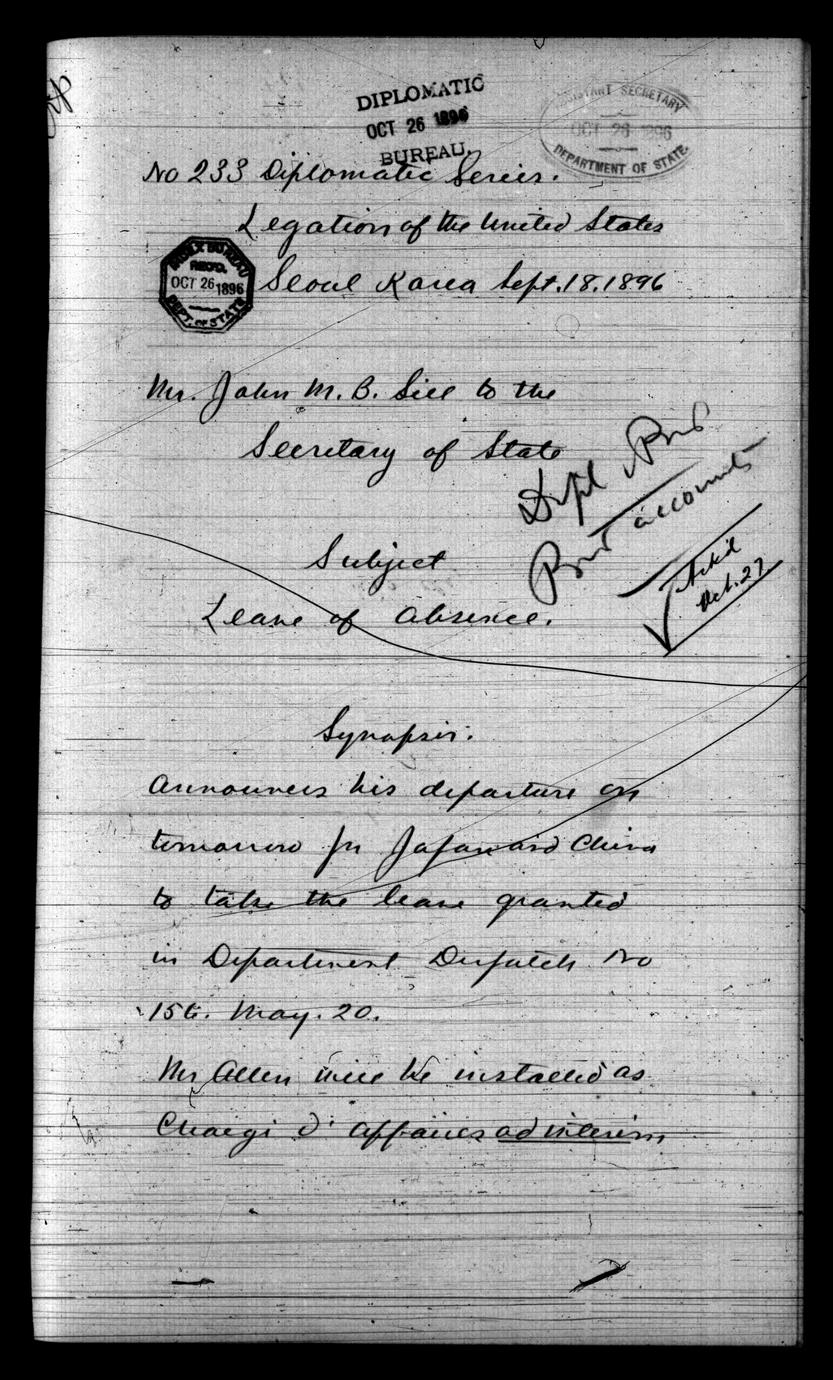 DIPLOMATIC
OCT 26 1896
BUREAU.
ASSISTANT SECRETARY
OCT 26 1896
DEPARTMENT OF STATE.
No 233 Diplomatic Series.
Legation of the United States
INDEX BUREAU
REC'D.
OCT 26 1896
DEPT. OF STATE
Seoul Korea Sept. 18. 1896
Mr. John M. B. Sill to the
Secretary of State
Accounts
Ack'd
Oct. 27
Subject
Leave of Absence.
Synopsis.
Announces his departure on
tomorrow for Japan and China
to take the leave granted
in Department Despatch No
156. May. 20.
Mr Allen will be installed as
Chargi d' affaires ad interim